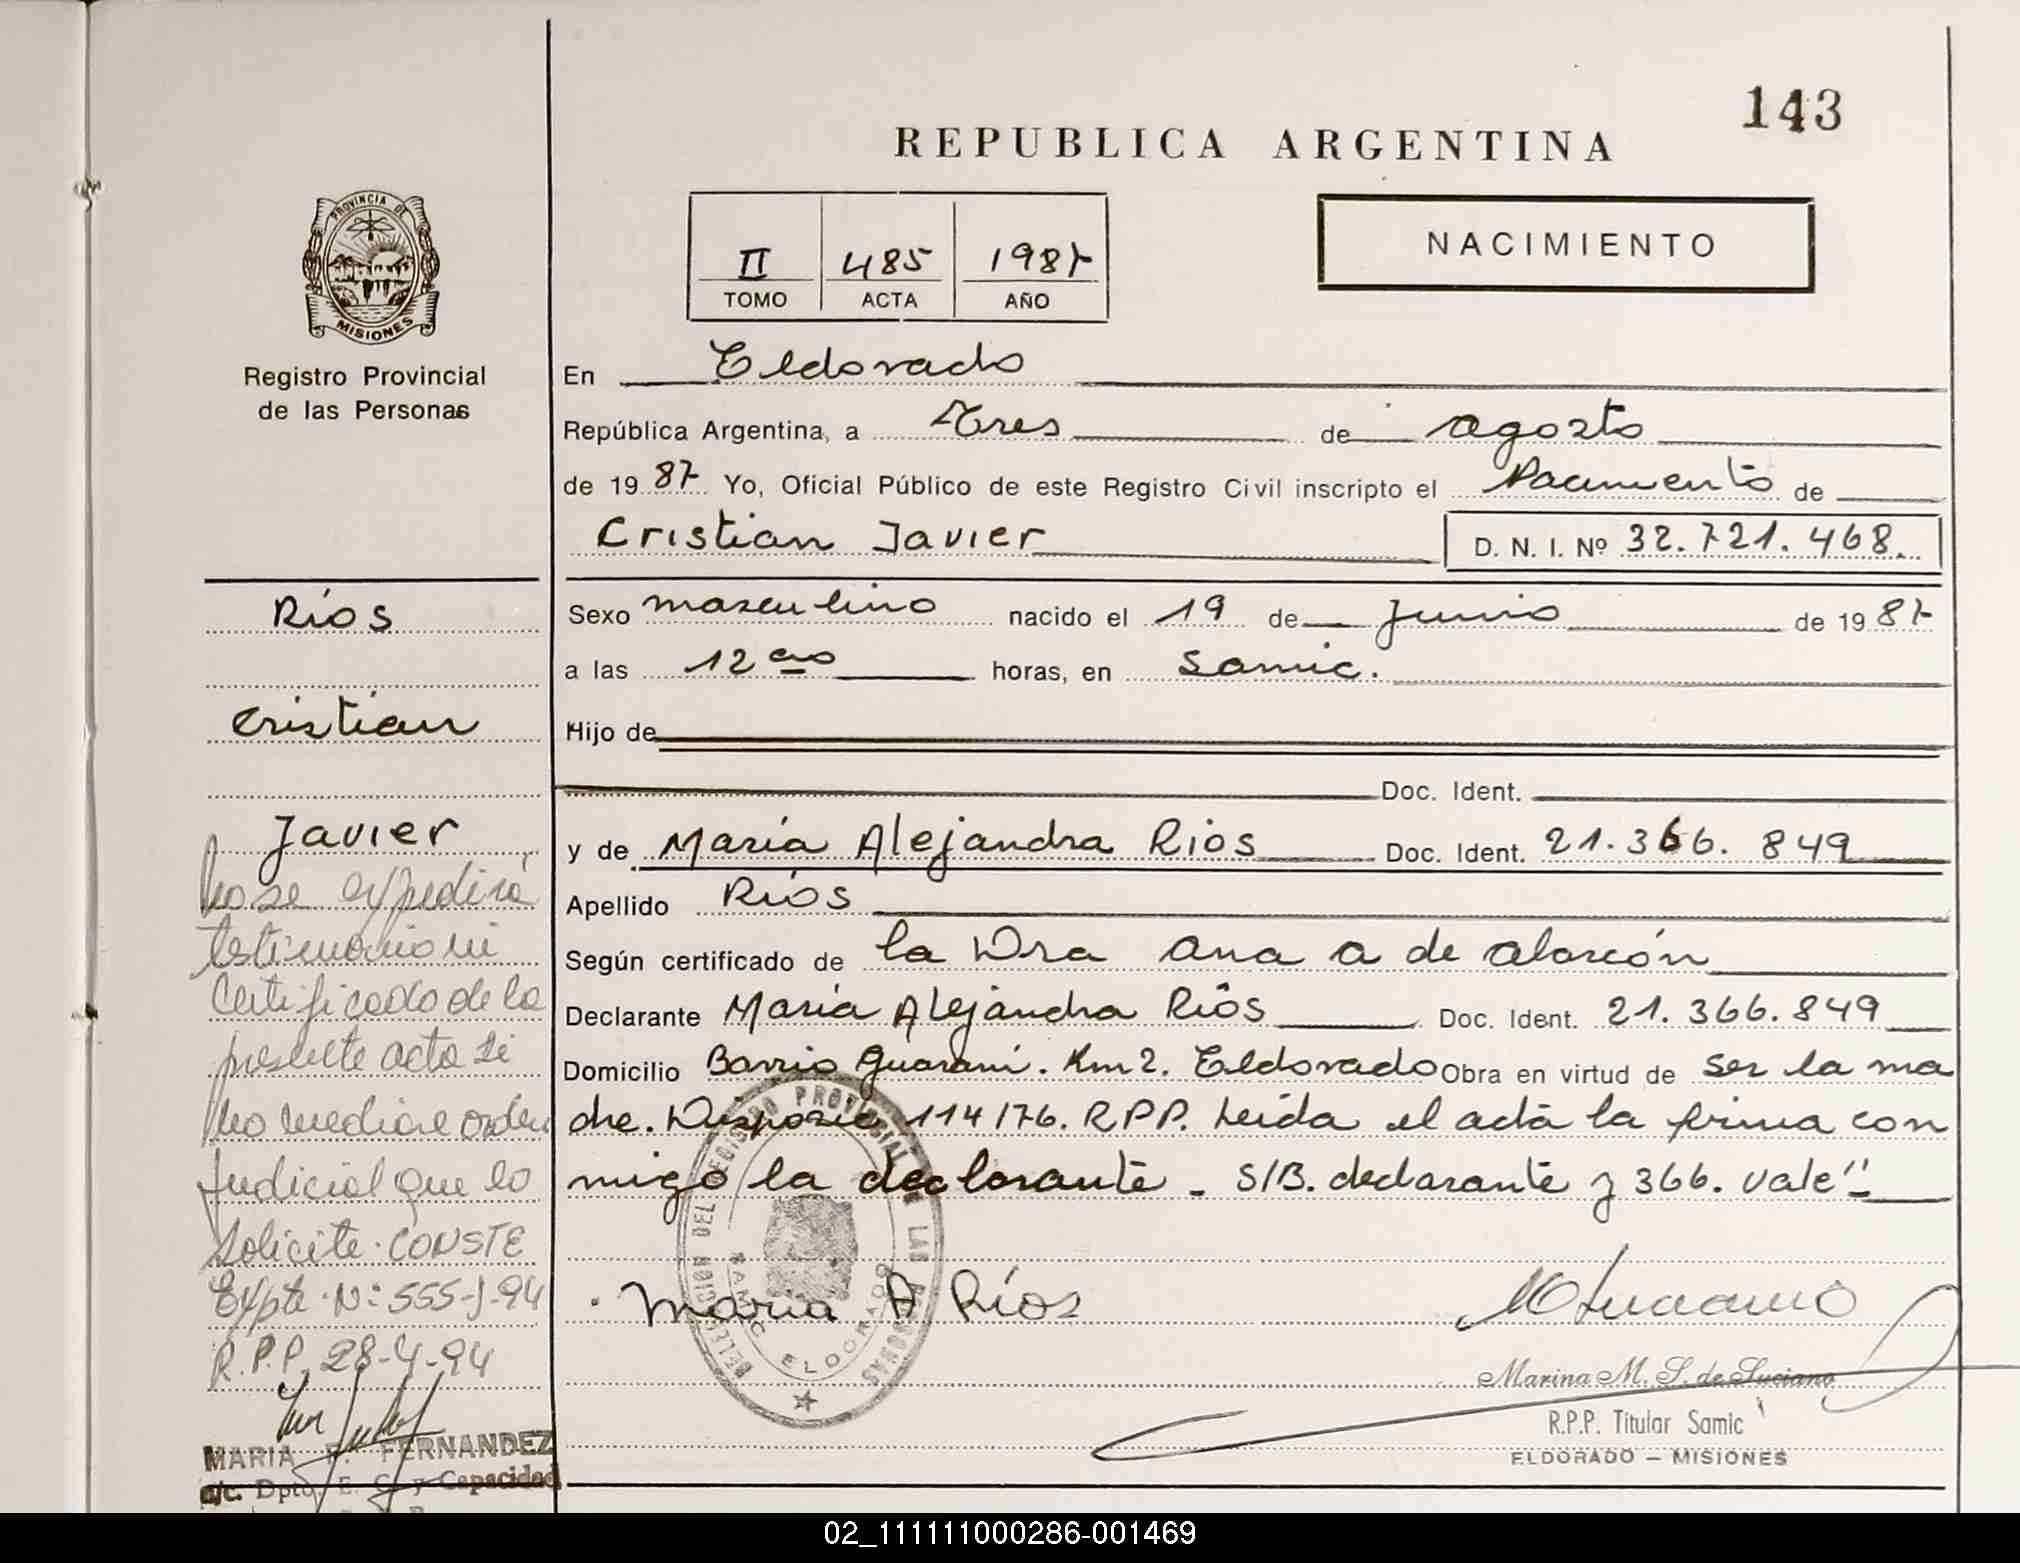 143
REPUBLICA ARGENTINA
II 485 1987
TOMO ACTA AÑO
NACIMIENTO
PROVINCIA DE
MISIONES
Registro Provincial
de las Personas
En Eldorado
República Argentina, a Tres de agosto
de 1987 Yo, Oficial Público de este Registro Civil inscripto el Nacimiento de
Cristian Javier D. N. I. Nº 32.721.468
Sexo masculino nacido el 19 de Junio de 1987
a las 12 horas, en Samic.
Hijo de
Doc. Ident.
y de María Alejandra Rios Doc. Ident. 21.366.849
Apellido Ríos
Según certificado de la Dra Ana A de Alarcón
Declarante María Alejandra Ríos Doc. Ident. 21.366.849
Domicilio Barrio Guaraní. Km 2. Eldorado Obra en virtud de ser la ma
dre. Disposic 114/76. R.P.P. Leída el acta la firma con
migo la declarante - S/B. declarante y 366. Vale"-
María A Ríos
DELEGACION DEL REGISTRO PROVINCIAL DE LAS PERSONAS
SAMIC ELDORADO
Marina M. S. de Luciano
R.P.P. Titular Samic
ELDORADO – MISIONES
Ríos
Cristian
Javier
No se expedirá
testimonio ni
Certificado de la
presente acta si
no mediare orden
Judicial que lo
Solicite. CONSTE
Expte. Nº: 555-J-94
R.P.P. 28-4-94
MARIA F. FERNANDEZ
a/c. Dpto. E. C. y Capacidad
02_111111000286-001469